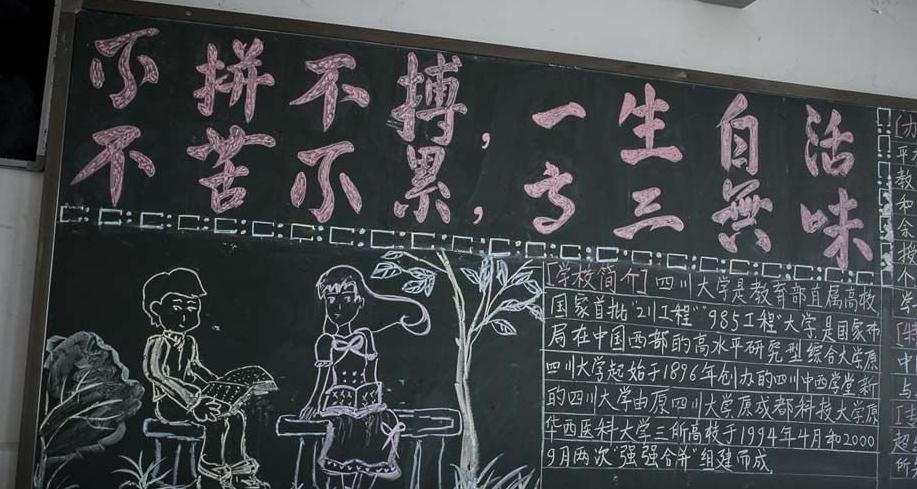 不拼不搏，一生白活
不苦不累，高三無味
[学校简介] 四川大学是教育部直属高校
国家首批"211工程""985工程"大学是国家布
局在中国西部的高水平研究型综合大学原
四川大学起始于1896年创办的四川中西学堂新
的四川大学由原四川大学原成都科技大学原
华西医科大学三所高校于1994年4月和2000
9月两次"强强合并"组建而成
平
教
和
合
授
个
学
中
与
超
所